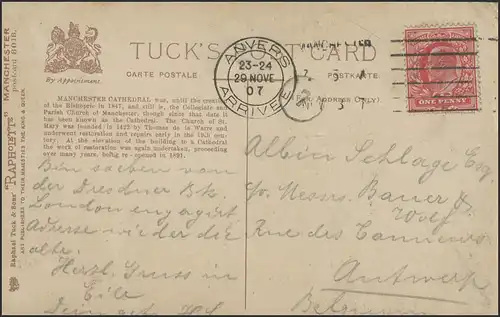 TUCK'S POST CARD
By Appointment.
CARTE POSTALE
POSTKARTE
(For Address Only)
MANCHESTER CATHEDRAL was, until the creation
of the Bishopric in 1847, and still is, the Collegiate and
Parish Church of Manchester, though since that date it
has been known as the Cathedral. The Church of St.
Mary was founded in 1422 by Thomas de la Warre and
underwent restoration and repairs early in the 19th century.
At the elevation of the building to a Cathedral
the work of restoration was again undertaken, proceeding
over many years, being re-opened in 1891.
Raphael Tuck & Sons' "RAPHOLETTE" MANCHESTER
ART PUBLISHERS TO THEIR MAJESTIES THE KING & QUEEN.
ANVERS
23-24
29 NOVE
07
ARRIVEE
MANCHESTER
ONE PENNY
Bin soeben von
der Dresdner Bk.
London engagirt
Adresse wieder die
alte.
Herzl. Gruss in
Eile
Albin Schlage Esq
c/o Messrs. Bauer &
Wolf
Rue des Tanneurs
Antwerp
Belgium